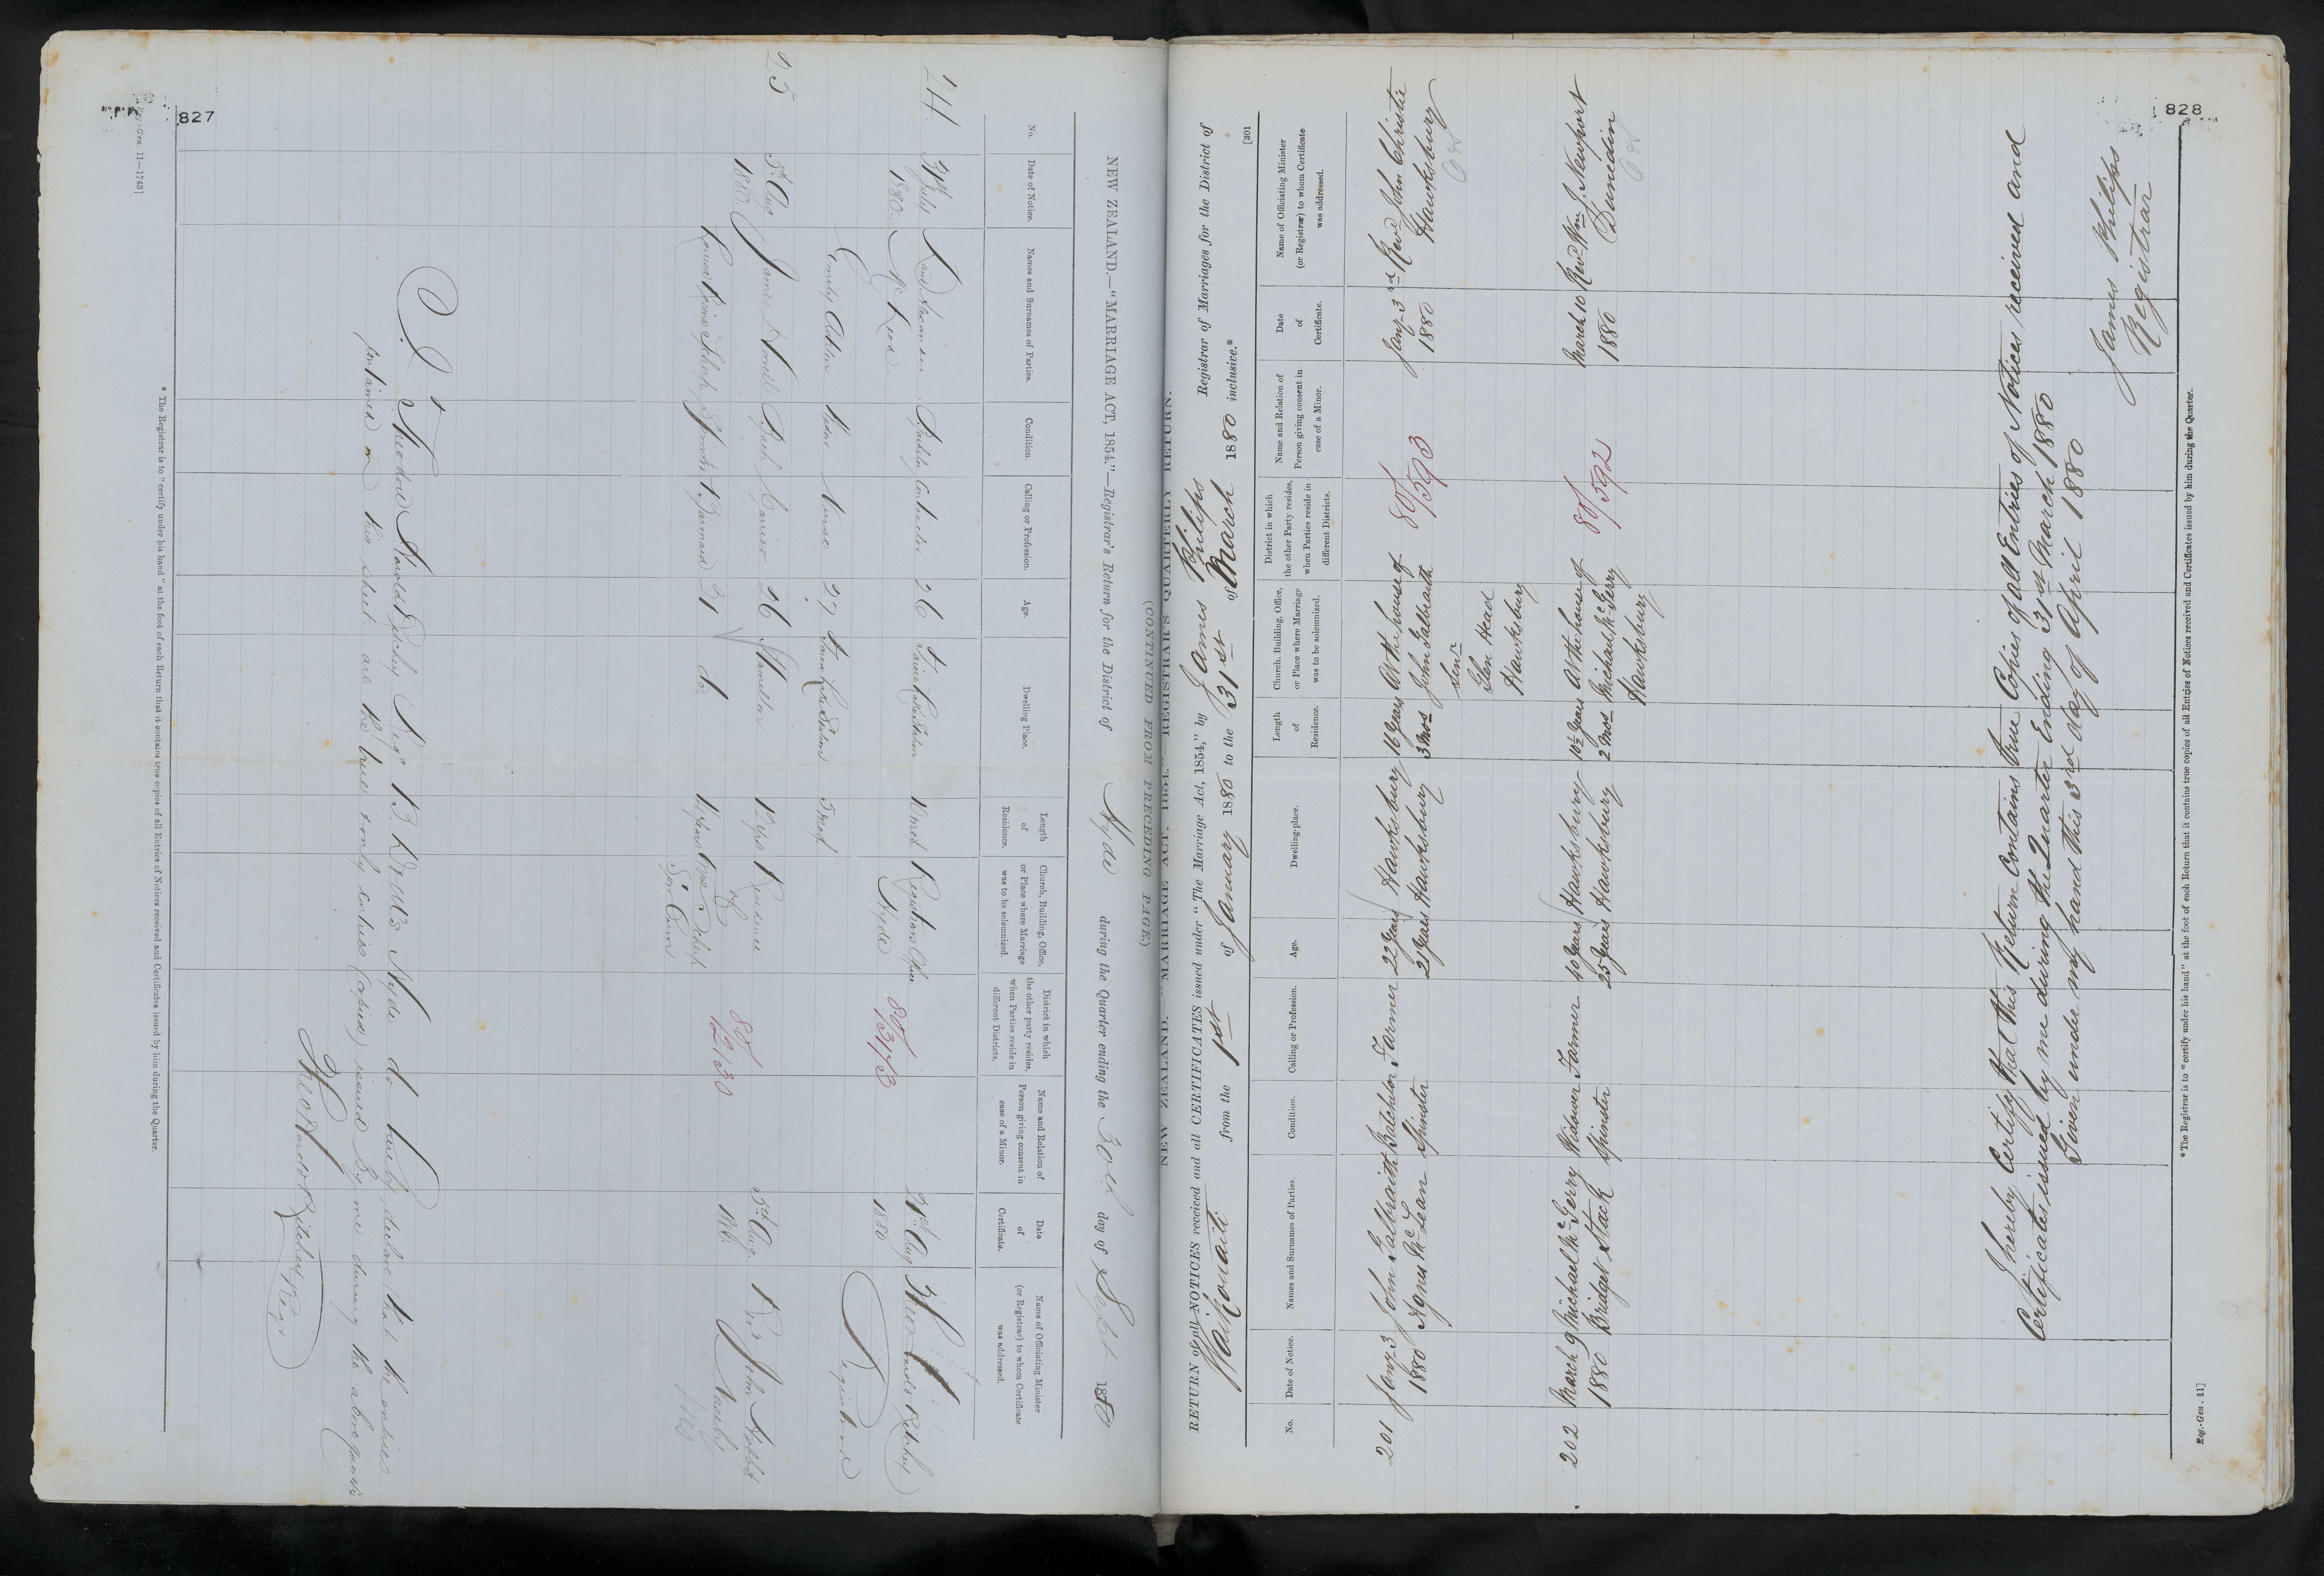 827
NEW ZEALAND.—"MARRIAGE ACT, 1854."—Registrar's Return for the District of Hyde during the Quarter ending the 30th day of Sept 1880
No.
Date of Notice.
Names and Surnames of Parties.
Condition.
Calling or Profession.
Age.
Dwelling Place.
Length of Residence.
Church, Building, Office, or Place where Marriage was to be solemnized.
District in which the other party resides, when Parties reside in different Districts.
Name and Relation of Person giving consent in case of a Minor.
Date of Certificate.
Name of Officiating Minister (or Registrar) to whom Certificate was addressed.
24
31st July
26
10 mos
Registrars Office
31st Aug
1880
Mc
Hyde
80/1313
1880
Registrar
Emily
Nurse
27
3 mos
25
5th Aug
James
Bach
Carrier
26
Hamilton
12 yrs
Residence
5th Aug
Revd John
1880
of
80/1230
Louisa
Spinster
Barmaid
21
do
Mrs
I Theodore Harold
Hyde do hereby declare that the entries
contained on this sheet are the true & only entries (copies) issued by me during the above quarter
* The Registrar is to "certify under his hand" at the foot of each Return that it contains true copies of all Entries of Notices received and Certificates issued by him during the Quarter.
Reg.-Gen. 11—1743]
828
NEW ZEALAND. "MARRIAGE ACT, 1854." REGISTRAR'S QUARTERLY RETURN.
(CONTINUED FROM PRECEDING PAGE.)
RETURN of all NOTICES received and all CERTIFICATES issued under "The Marriage Act, 1854," by James Philips Registrar of Marriages for the District of
Waikouaiti from the 1st of January 1880 to the 31st of March 1880 inclusive.*
[301
No.
Date of Notice.
Names and Surnames of Parties.
Condition.
Calling or Profession.
Age.
Dwelling-place.
Length of Residence.
Church, Building, Office, or Place where Marriage was to be solemnized.
District in which the other Party resides, when Parties reside in different Districts.
Name and Relation of Person giving consent in case of a Minor.
Date of Certificate.
Name of Officiating Minister (or Registrar) to whom Certificate was addressed.
201 Jany 3 John Galbraith Batchelor Farmer 22 years Hawksbury 16 years At the house of 80/593 Jany 3rd Revd John Christie
1880 Agnes McLean Spinster 21 years Hawksbury 3 mos John Galbraith 1880 Hawksbury
Senr
Glen Head
Hawksbury
202 March 9 Michael McGerry Widower Farmer 40 years Hawksbury 10½ years At the house of 80/592 March 10 Revd Wm J. Newport
1880 Bridget Stack Spinster 25 years Hawksbury 2 mos Michael McGerry 1880 Dunedin
Hawksbury
I hereby Certify that this Return Contains true Copies of all Entries of Notices received and
Certificates issued by me during the Quarter Ending 31st March 1880
Given under my hand this 3rd day of April 1880
James Philips
Registrar
* The Registrar is to "certify under his hand" at the foot of each Return that it contains true copies of all Entries of Notices received and Certificates issued by him during the Quarter.
Reg.-Gen. 11]